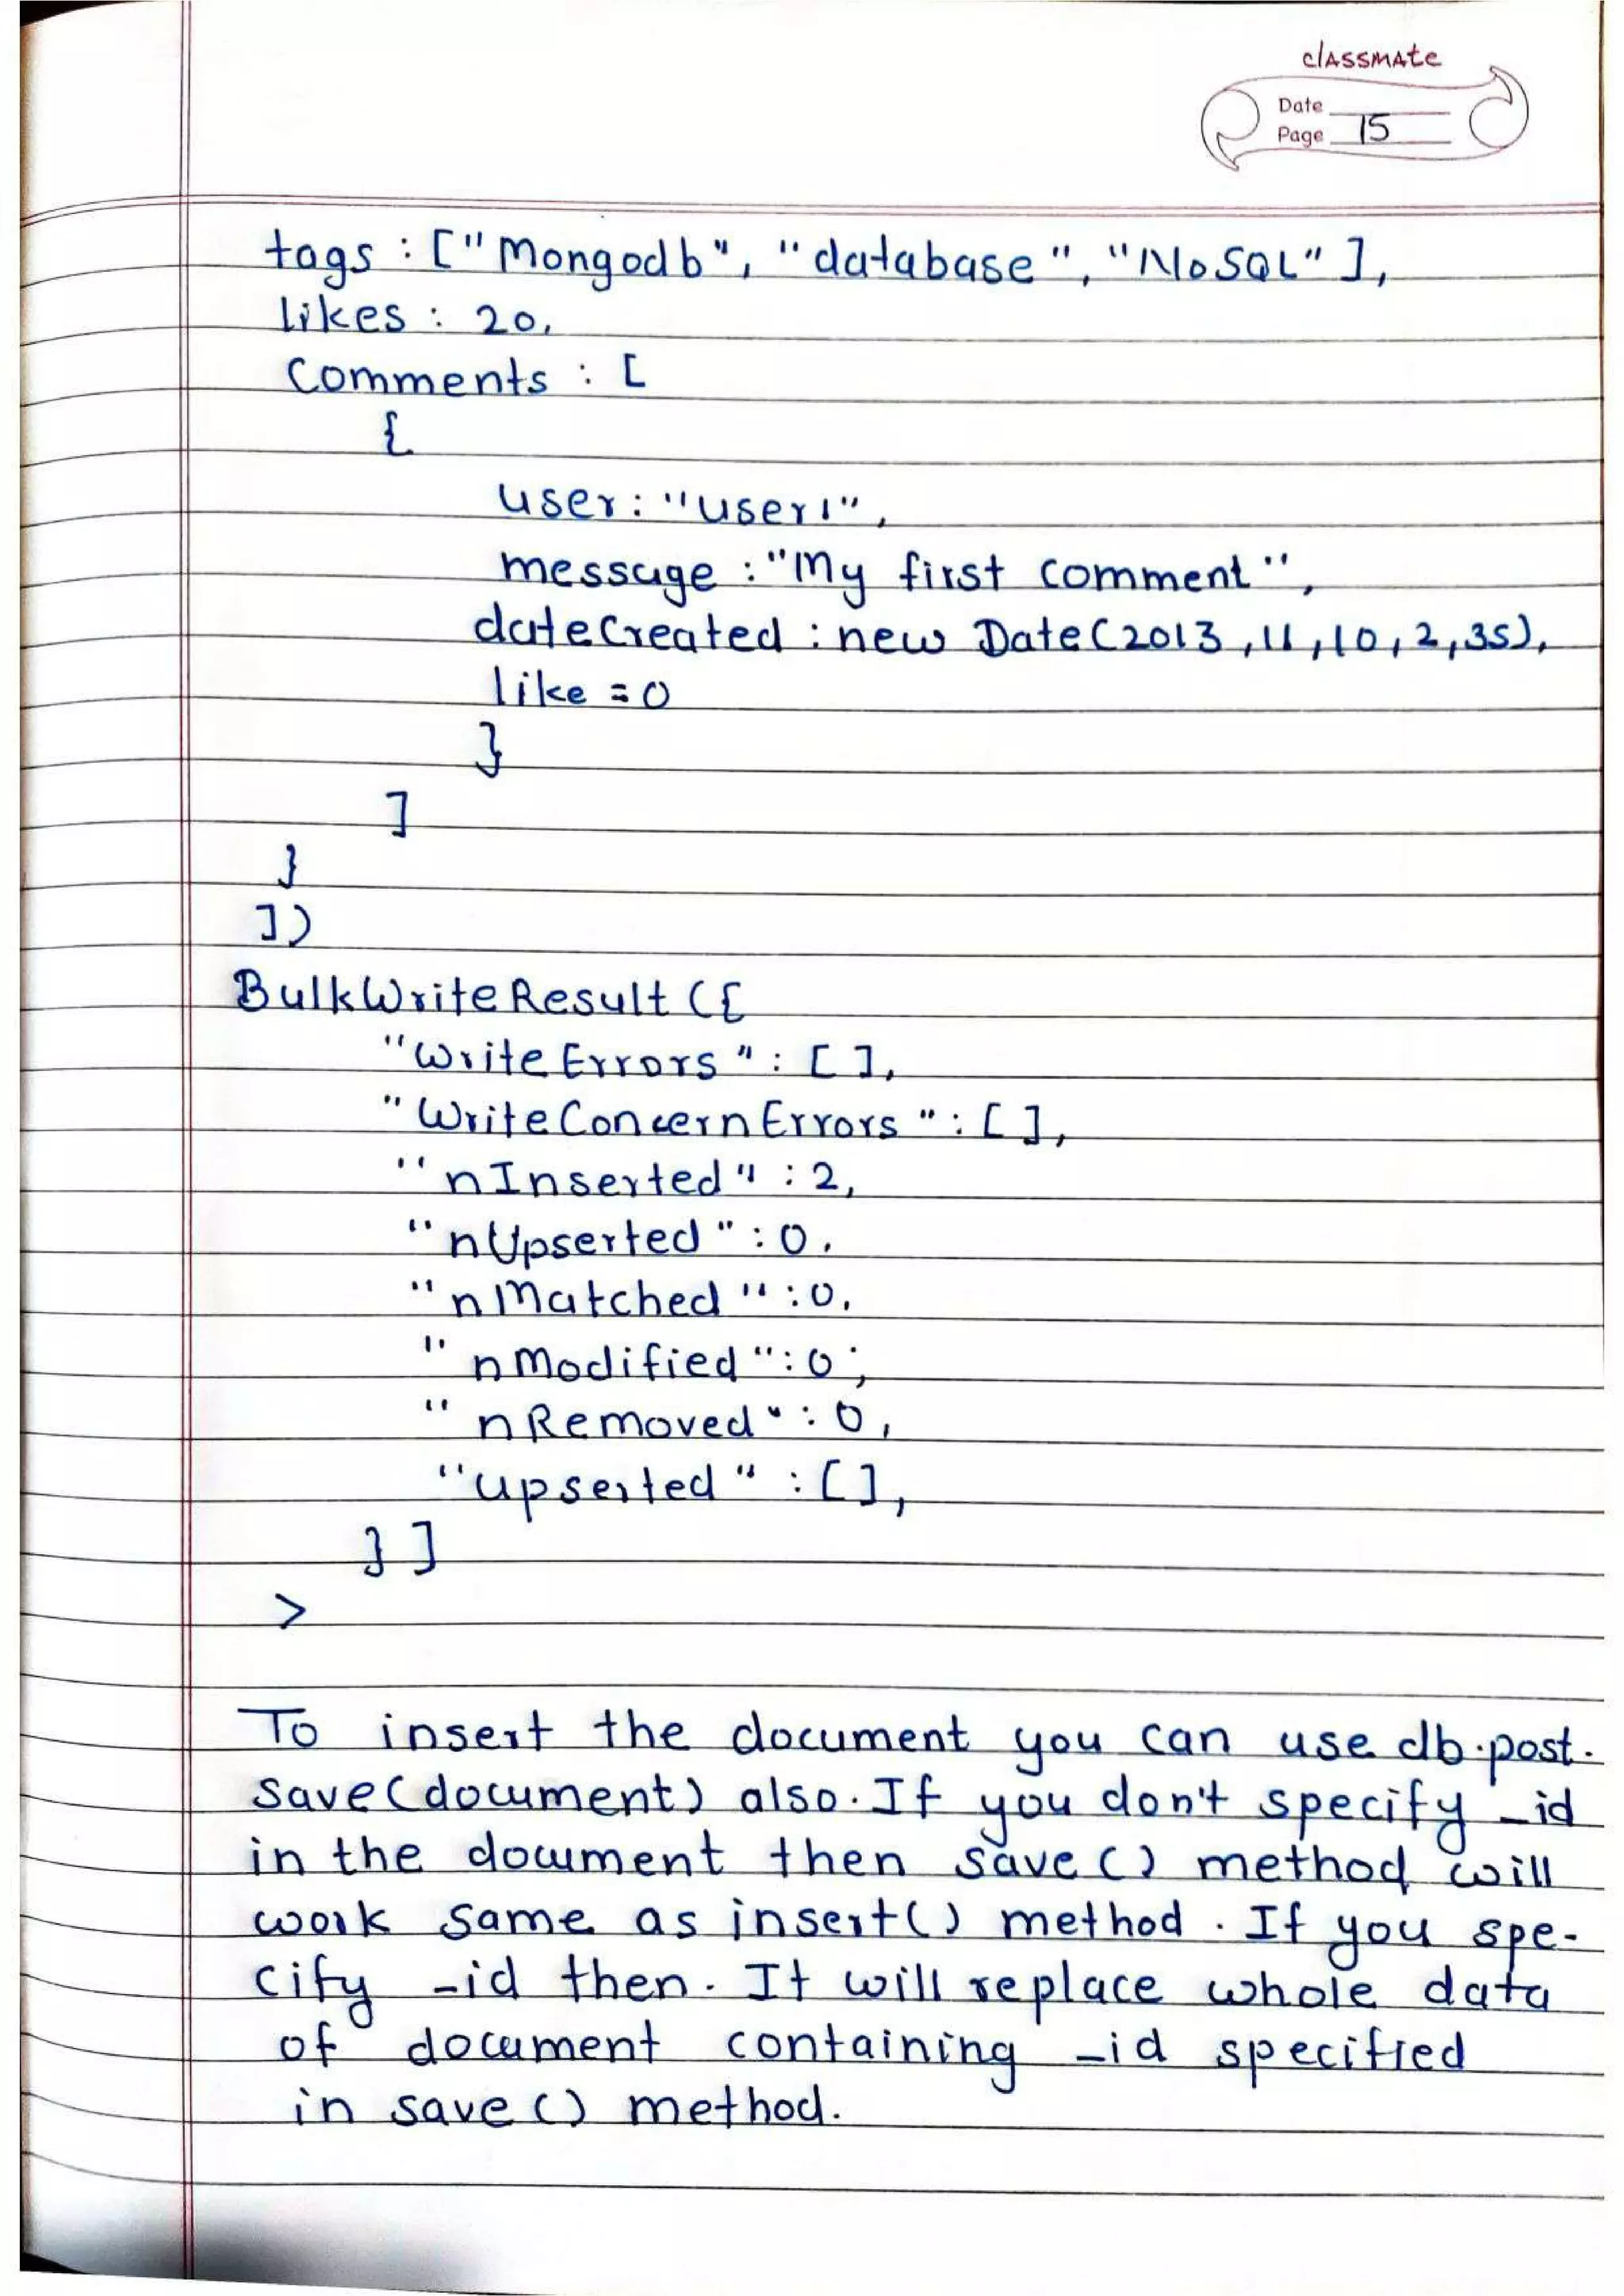 classmate
Date
Page 15
tags : ["Mongodb", "database", "NoSQL"],
likes : 20,
Comments : [
{
user : "user1",
message : "My first comment",
dateCreated : new Date(2013,11,10,2,35),
like = 0
}
]
}
])
BulkWriteResult ({
"WriteErrors" : [ ],
"WriteConcernErrors" : [ ],
"nInserted" : 2,
"nUpserted" : 0,
"nMatched" : 0,
"nModified" : 0;
"nRemoved" : 0,
"upserted" : [ ],
} ]
>
To insert the document you can use db.post.
save(document) also. If you don't specify _id
in the document then save() method will
work same as insert() method. If you spe-
cify _id then. It will replace whole data
of document containing _id specified
in save() method.